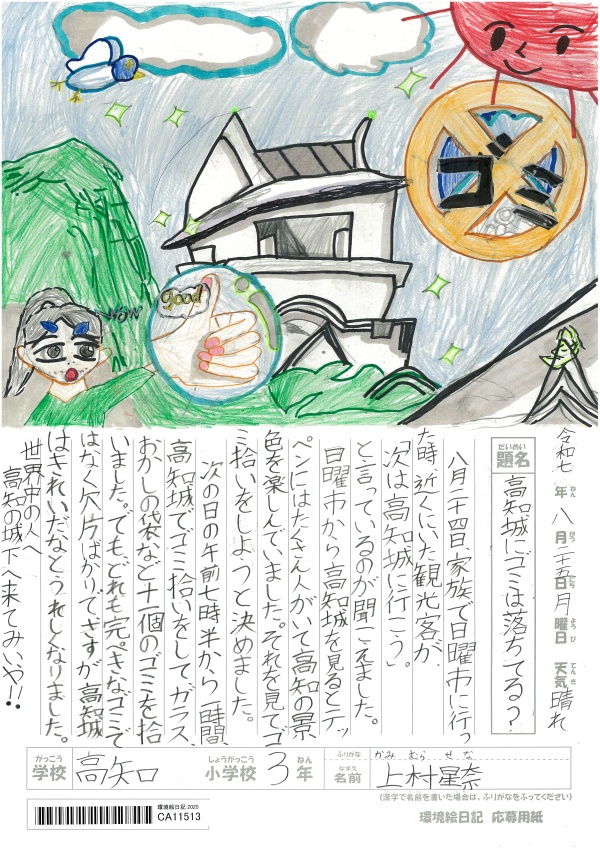 good
wow
ゴミ
令和七年八月二十五日月曜日 天気晴れ
ねん がつ にち ようび てんき
だいめい
題名 高知城にゴミは落ちてる?
八月二十四日、家族で日曜市に行っ
た時、近くにいた観光客が、
「次は高知城に行こう。」
と言っているのが聞こえました。
日曜市から高知城を見るとテッ
ペンにはたくさん人がいて高知の景
色を楽しんでいました。それを見てゴ
ミ拾いをしようと決めました。
次の日の午前七時半から一時間、
高知城でゴミ拾いをして、ガラス、
おかしの袋など十一個のゴミを拾
いました。でもどれも完ぺきなゴミで
はなく欠片ばかりでさすが高知城
はきれいだなとうれしくなりました。
世界中の人へ
高知の城下へ来てみいや!!
がっこう しょうがっこう ねん ふりがな かみむら せな
学校 高知 小学校 3年 なまえ 名前 上村星奈
(漢字で名前を書いた場合は、ふりがなをふってください)
環境絵日記 2025
CA11513
環境絵日記 応募用紙